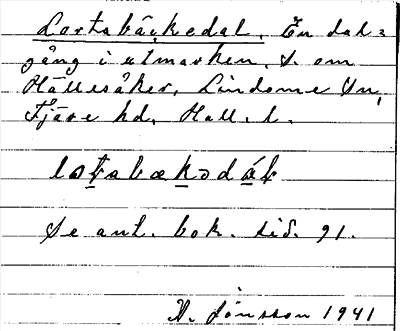 Lortabäckedal. En dal=
gång i utmarken, S. om
Hällesåker, Lindome Sn,
Fjäre hd, Hall. l.
Se ant. bok. sid. 91.
Jönsson 1941